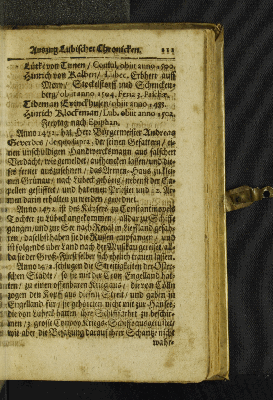 Auszug Lübischer Chronicken. 
Lütke von Tunen / Consul, obiit anno
Hinrich von Kalven / Lübec. Erbherr auff
obiit anno 1504. Feria 3. Paschæ.
Tideman Evinckhusen / obiit anno
Hinrich Klockeman / Lub. obiit anno 1502.
Freytag nach Epiphan.
Anno 1472. hat Herr Bürgermeister Andreas
Geverdes / der seinen Gefattern / ei-
nen unschüldigen Handwercksmann aus falschem
Verdacht / wie gemeldet / auffhencken lassen / und die-
ses ferner auszusehnen / das Armen-Haus zu klei-
nen Grünau / nach Lübeck gehörig / nebenst der Ca-
pellen gestifftet / und hat einen Priester und 12. Ar-
men darin erhalten zu werden / geordnet.
Anno 1472. ist des Käysers zu Constantinopel
Tochter zu Lübeck angekommen / alda zu Schiffe
gangen / und zur See nach Reval in Lieffland gefah-
ren / daselbst haben sie die Russen empfangen / und
ist folgends über Land nach der Muskau gereiset / all-
da sie der Groß-Fürst selber sich ehelich trauen lassen.
Anno
Städte / so sie mit der Cron Engelland hat-
ten / zu einen offenbaren Kriege aus / die von Cölln
zogen den Kopff aus diesem Streit / und gaben in
Engelland für / sie gehöreten nicht mit zur Hanse /
die von Lübeck hatten ihre Schiffarth zu beschir-
men / 3. grosse Convoy Kriegs-Schiffe ausgerüstet /
wie aber die Besatzung darauf ihrer Schantze nicht
wahr-